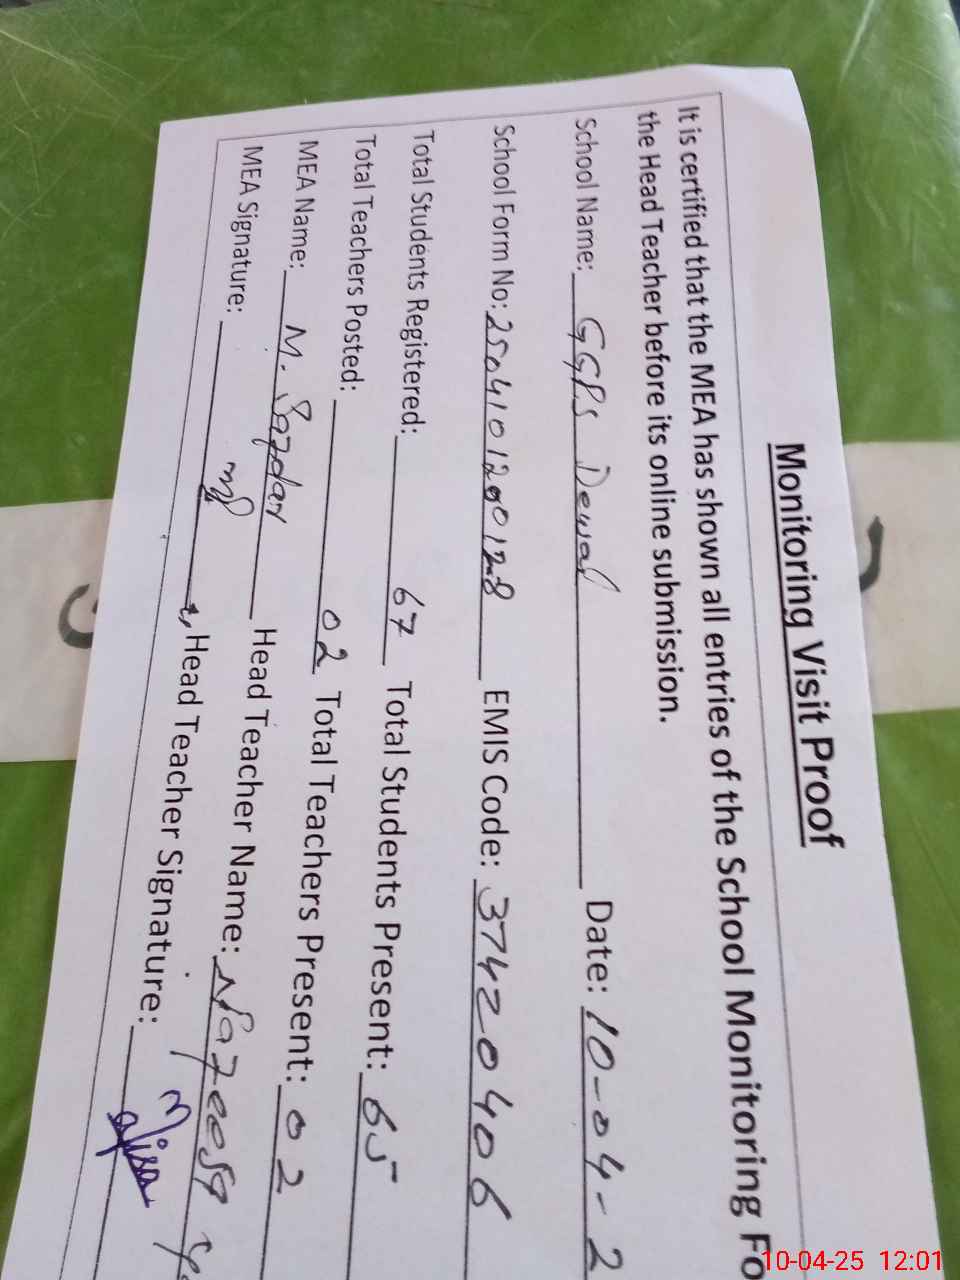 Monitoring Visit Proof
It is certified that the MEA has shown all entries of the School Monitoring Fo
the Head Teacher before its online submission.
School Name: GGPS Dewal Date: 10-04-2
School Form No: 2504101200128 EMIS Code: 37420406
Total Students Registered: 67 Total Students Present: 65
Total Teachers Posted: 02 Total Teachers Present: 02
MEA Name: M. Sajdar Head Teacher Name:
MEA Signature: Head Teacher Signature:
10-04-25 12:01